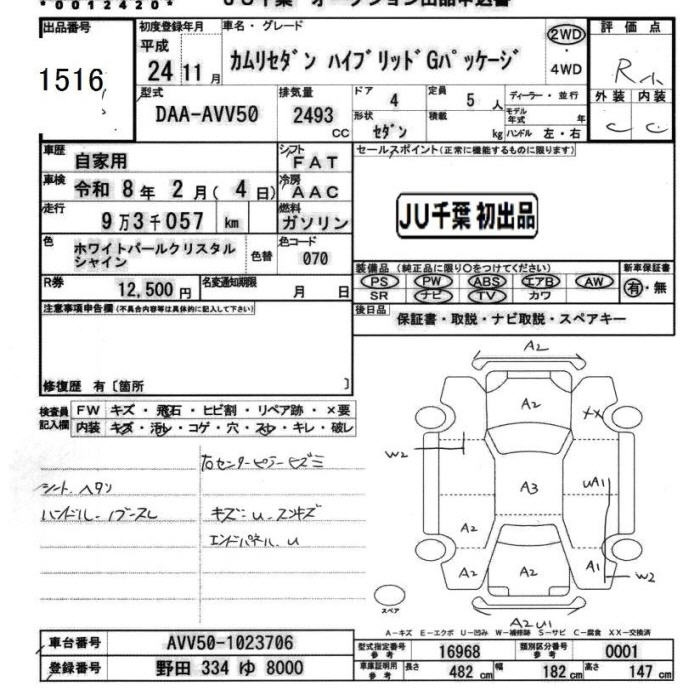 *00012420*
JU千葉 オークション出品申込書
出品番号
1516
初度登録年月
平成
24 11 月
車名・グレード
カムリセダン ハイブリッドGパッケージ
2WD
・
4WD
評価点
R小
外装 内装
C C
型式
DAA-AVV50
排気量
2493
CC
ドア
4
定員
5 人
形状
セダン
積載
kg
ディーラー・並行
モデル年式 年
ハンドル 左・右
車歴
自家用
シフト
FAT
車検
令和 8 年 2 月 ( 4 日)
冷房
AAC
走行
9 万 3 千 057 km
燃料
ガソリン
色
ホワイトパールクリスタル
シャイン
色替
色コード
070
R券
12,500 円
名変通知期限
月 日
セールスポイント(正常に機能するものに限ります)
JU千葉 初出品
装備品 (純正品に限り○をつけてください)
PS PW ABS エアB AW
SR ナビ TV カワ
新車保証書
有・無
後日品
保証書・取説・ナビ取説・スペアキー
注意事項申告欄 (不具合内容等は具体的に記入して下さい)
修復歴 有〔箇所 〕
検査員
記入欄
FW キズ・飛石・ヒビ割・リペア跡・×要
内装 キズ・汚レ・コゲ・穴・スレ・キレ・破レ
右センターピラーヒズミ
シート、ヘタリ
ハンドル、
キズ・U、スリキズ
エンドパネル、U
A2
A2
XX
W2
A3
UA1
A2
A1
W2
A2
A2
A2 U1
スペア
A-キズ E-エクボ U-凹み W-補修跡 S-サビ C-腐食 XX-交換済
車台番号
AVV50-1023706
登録番号
野田 334 ゆ 8000
型式指定番号
参考
16968
類別区分番号
参考
0001
車庫証明用
参考
長さ
482 cm
幅
182 cm
高さ
147 cm